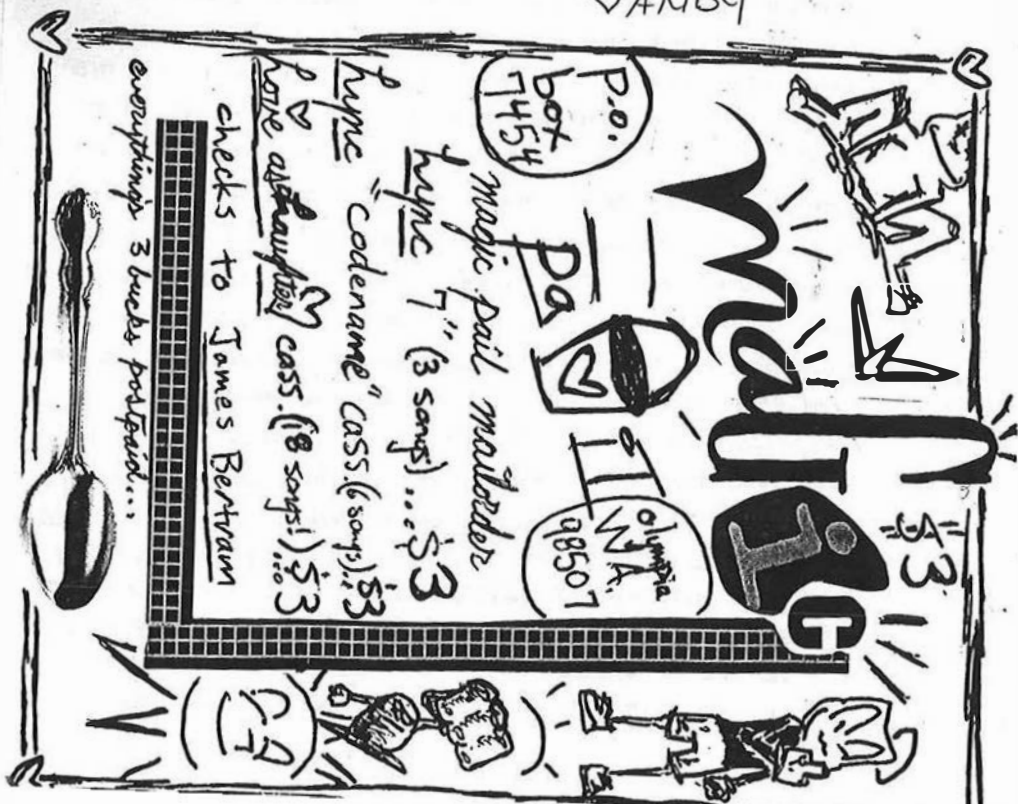 $3
magic
pail
p.o.
box
7454
olympia
WA.
98507
magic pail mailorder
Lync 7" (3 songs)...$3
Lync "codename" cass.(6 songs).$3
Love as laughter cass.(18 songs!)...$3
checks to James Bertram
everything's 3 bucks postpaid...